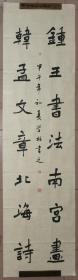 鍾王書法南宮畫
韓孟文章北海詩
甲午年初夏